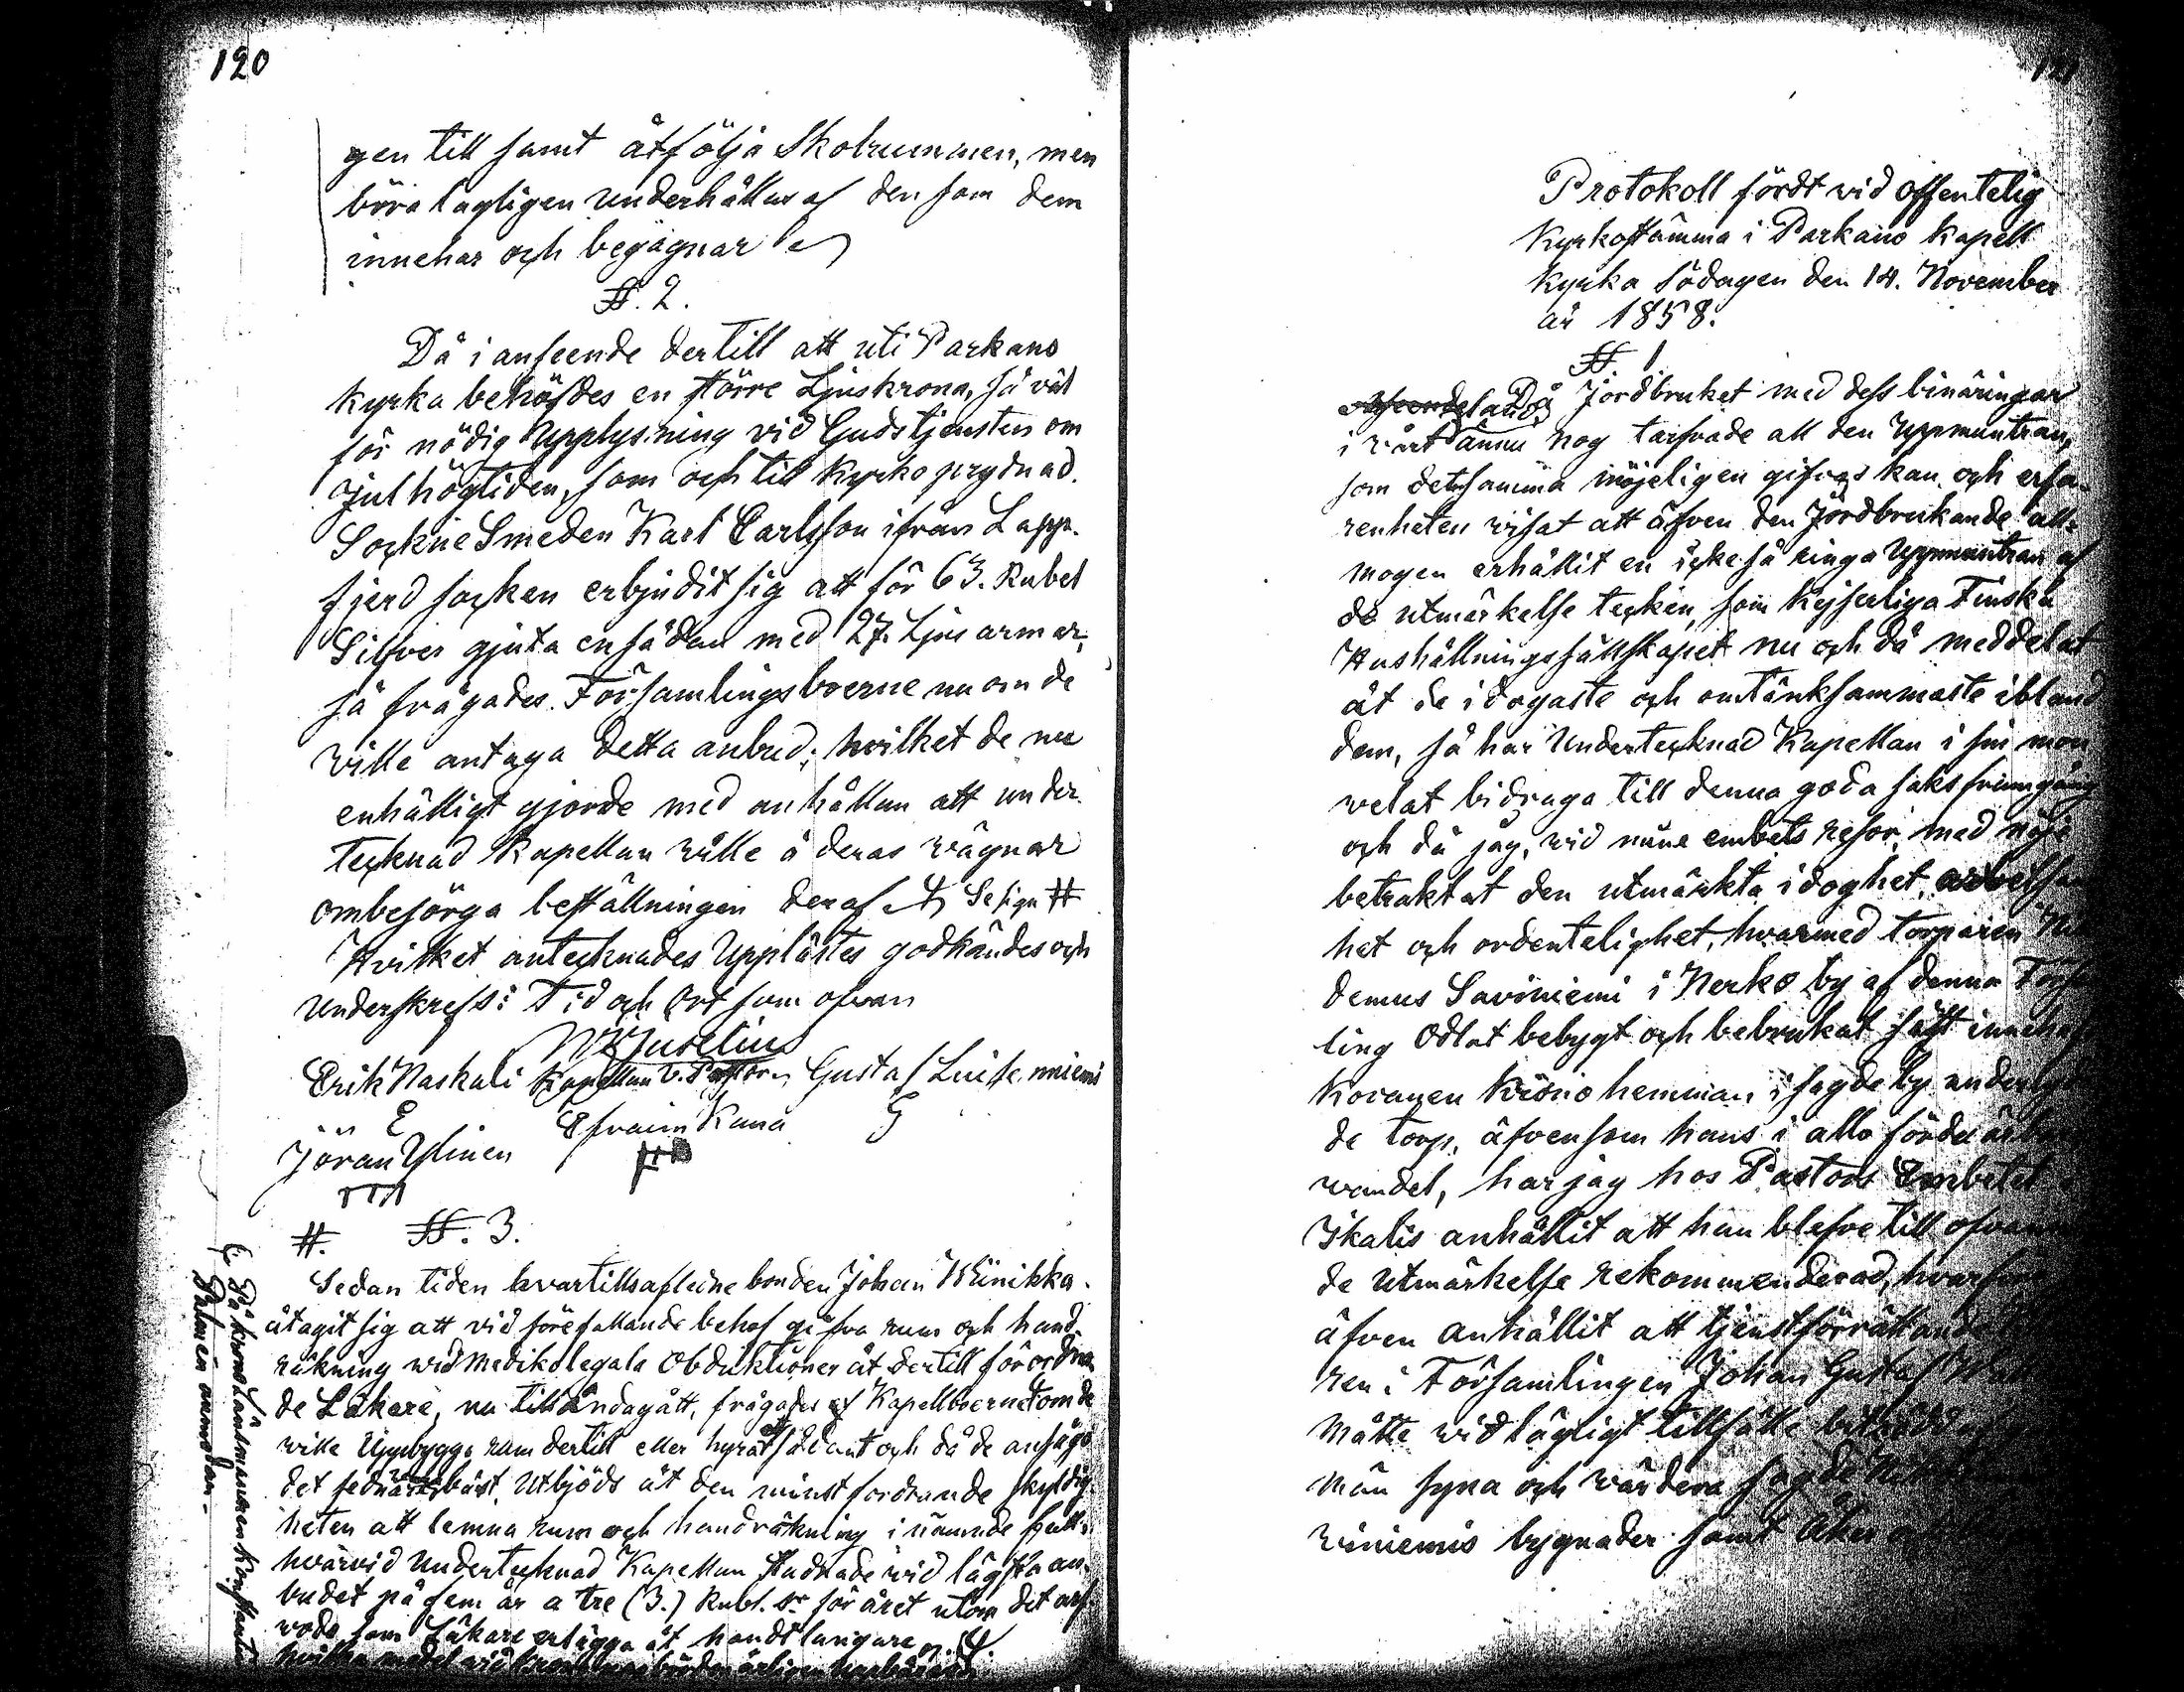 120
gen till samt åtfölja Skolrummen, men
böra lagligen underhållas af den som dem
innehar och begagnar
§. 2.
Då i anseende dertill att uti Parkano
kyrka behöfdes en större Ljuskrona, så väl
för nödig Upplysning vid Gudstjensten om
Julhögtiden, som och till Kyrko prydnad.
Sockne Smeden Karl Carlsson ifrån Lapp-
fjerd socken erbjudit sig att för 63. Rubel
Silfver gjuta en sådan med 27. Ljus armar,
så frågades Församlingsboerne nu om de
ville antaga detta anbud; hvilket de nu
enhälligt gjorde med anhållan att under
tecknad Kapellan ville å deras vägnar
ombesörga beställningen deraf Se sign #
Hvilket antecknades Upplästes godkändes och
underskrefs: Tid och Ort som ofvan
Erik Naskali Kapellan V. Pastor Gustaf
E Efraim Kana G
Jöran Ylinen
#. §. 3.
Sedan tiden hvartills aflidne bonden Johan Wiinikka
åtagit sig att vid förefallande behof gifva rum och hand-
räkning wid Mediko legala Obduktioner åt dertill förordna-
de Läkare, nu till ändagått, frågades af Kapellboerne om de
ville Uppbygga rum dertill eller hyra sådant och då de ansågo
det sednare bäst, Utbjöds åt den minst fordrande skyldig-
heten att lemna rum och handräkning i nämnde fall;
hvarvid Undertecknad Kapellan stadnade wid lägsta an-
budet på fem år a tre (3.) Rubl. Sr för året utom det arf-
vode som Läkare erlägga åt handtlangare
På krono Länsmannen Konstantin
Palmén anmodan-
Protokoll fördt vid offentelig
Kyrkostämma i Parkano Kapell
kyrka Södagen den 14. November
år 1858.
§ 1
Då Jordbruket med dess binäringar
i vårt land ännu nog tarfvade all den Uppmuntran,
som detsamma möjeligen gifvas kan och erfa-
renheten visat att äfven den Jordbrukande all-
mogen erhållit en icke så ringa Uppmuntran af
de utmärkelse tecken, som Kejserliga Finska
Hushållningssällskapet nu och då meddelat
åt de idogaste och omtänksammaste ibland
dem, så har Undertecknad Kapellan i sin mon
velat bidraga till denna goda saks framgång
och då jag, vid mine embets resor, med nöje
betraktat den utmärkta idoghet,
het och ordentelighet, hvarmed torparen
demus Saviniemi i Nerko by af denna
ling Odlat bebygt och bebrukat sitt
Koranen Krono hemman i sagde by
de torp, äfvensom hans i allo
vandel, har jag hos Pastors Embetet
Ikalis anhållit att han blefve till
de Utmärkelse rekommenderad,
äfven anhållit att tjenstförrättande
ren i Församlingen Johan Gustaf
måtte vid lägligt tillfälle
män syna och värdera sagde
viniemis bygnader samt